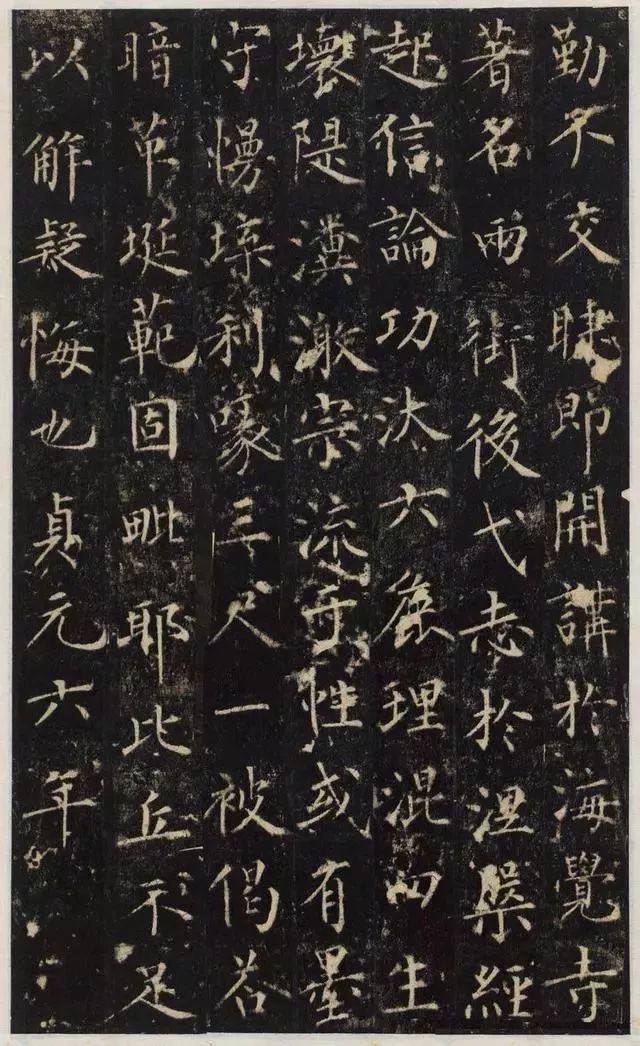 勤不交睫即開講於海覺寺
著名兩街後弋志於涅槃經
起信論功汰六麁理混四生
壞隄瀵澈宗流乎性或有墨
守慢利喙三尺一被偈荅
暗革埏範固毗耶比丘不足
以解疑悔也貞元六年